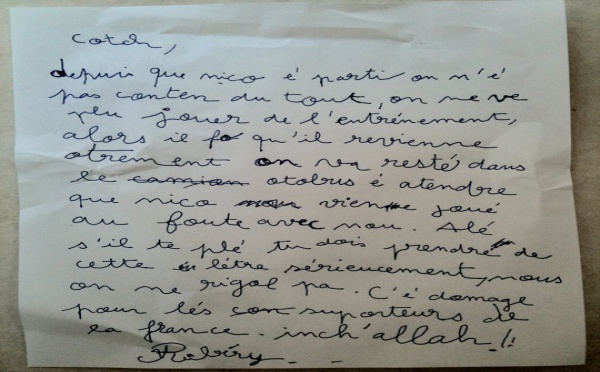 cotch,
depuis que nico é parti on n'é
pas conten du tout, on ne ve
plu jouer de l'entrénement,
alors il fo qu'il revienne
otrement on va resté dans
le camion otobus é atendre
que nico vienne joué
au foute avec nou. Alé
s'il te plé tu dois prendre de
cette létre sérieucement, nous
on ne rigol pa. C'é domage
pour lés con suporteurs de
la france. inch'allah !!
Ribéry